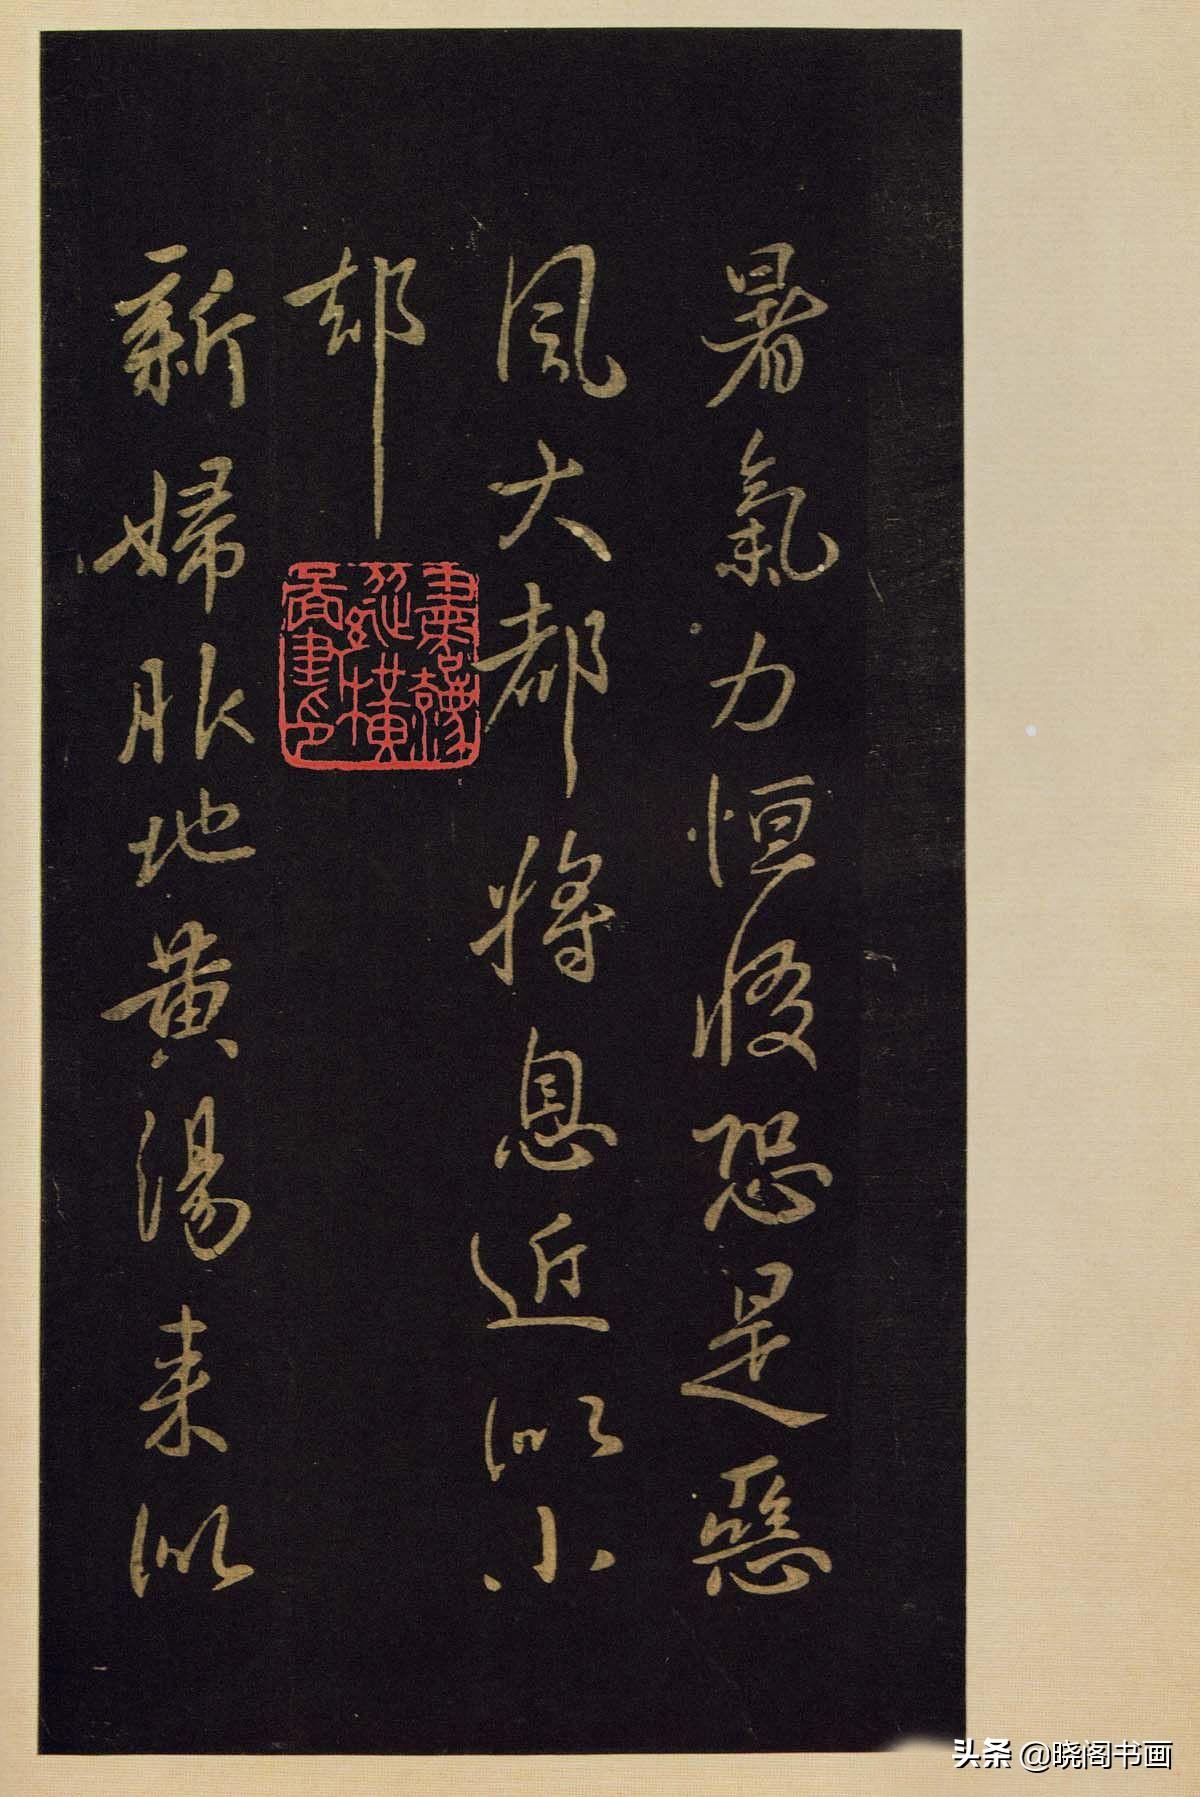 暑氣力恒惙恐是惡
風大都將息近似小
却
新婦服地黄湯来似
头条 @晓阁书画